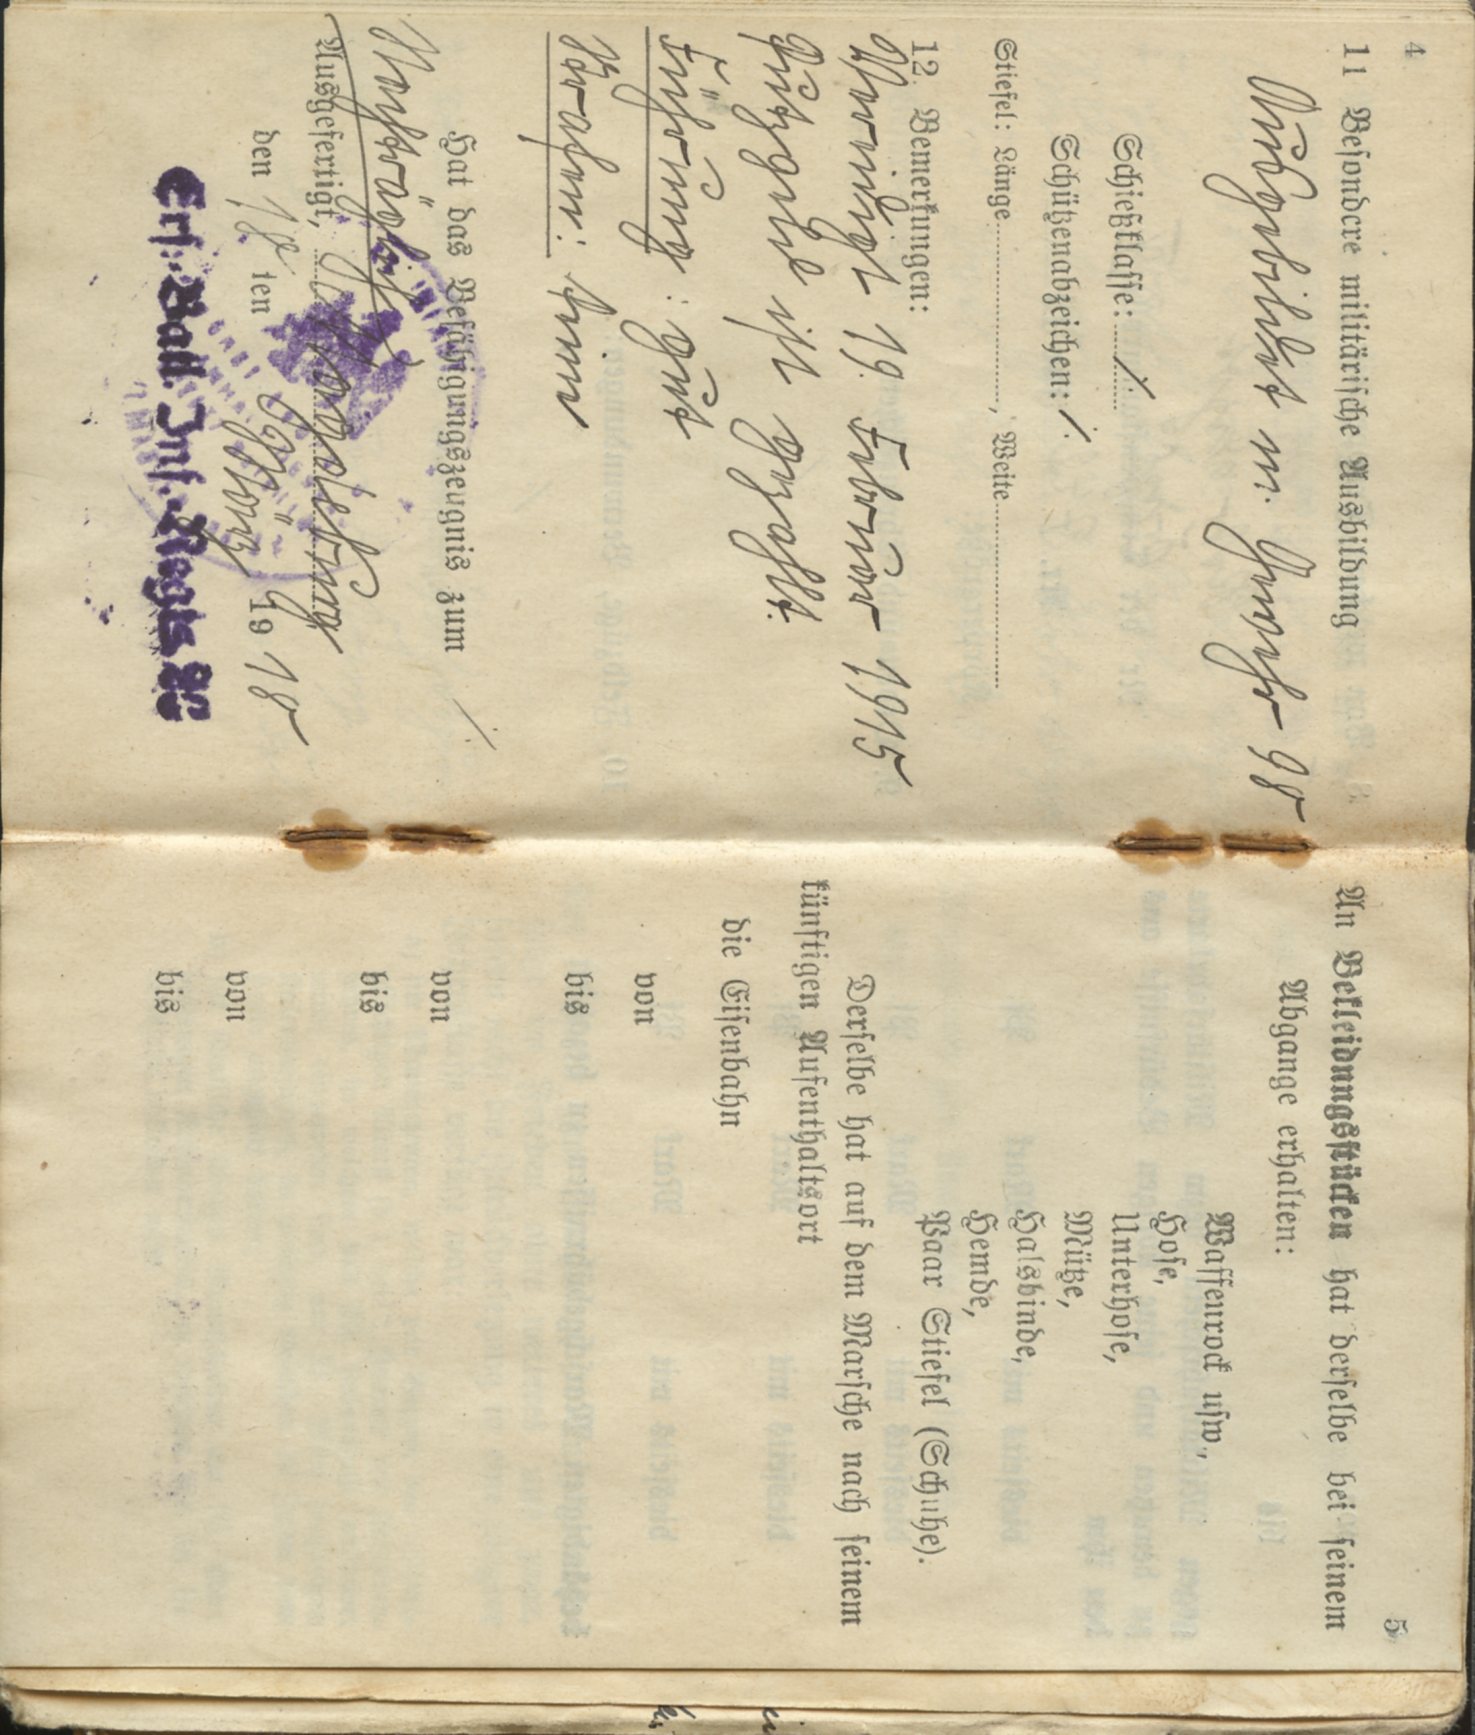 4
11 Besondere militärische Ausbildung
Ausgebildet m. Gewehr 98
Schießklasse: /.
Schützenabzeichen: /.
Stiefel: Länge, Weite
12. Bemerkungen:
Vereidigt 19. Februar 1915
Putzgeld ist gezahlt.
Führung: gut
Strafen: keine
Hat das Befähigungszeugnis zum
/.
Nachträglich
Ausgefertigt,
den 18 ten März 19 18
Ers. Batl. Inf. Regts
5
An Bekleidungsstücken hat derselbe bei seinem
Abgange erhalten:
Waffenrock usw.,
Hose,
Unterhose,
Mütze,
Halsbinde,
Hemde,
Paar Stiefel (Schuhe).
Derselbe hat auf dem Marsche nach seinem
künftigen Aufenthaltsort
die Eisenbahn
von
bis
von
bis
von
bis